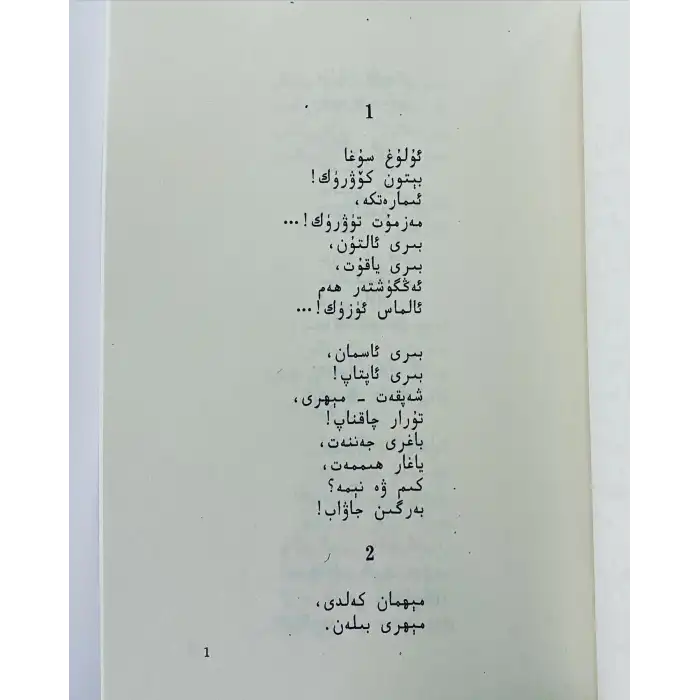 1
ئۇلۇغ سۇغا
بېتون كۆۋرۈك!
ئىمارەتكە،
مەزمۇت تۈۋرۈك!...
بىرى ئالتۇن،
بىرى ياقۇت،
ئەڭگۈشتەر ھەم
ئالماس ئۈزۈك!...
بىرى ئاسمان،
بىرى ئاپتاپ!
شەپقەت - مېھرى،
تۇرار چاقناپ!
باغرى جەننەت،
ياغار ھىممەت،
كىم ۋە نېمە؟
بەرگىن جاۋاب!
2
مېھمان كەلدى،
مېھرى بىلەن.
1